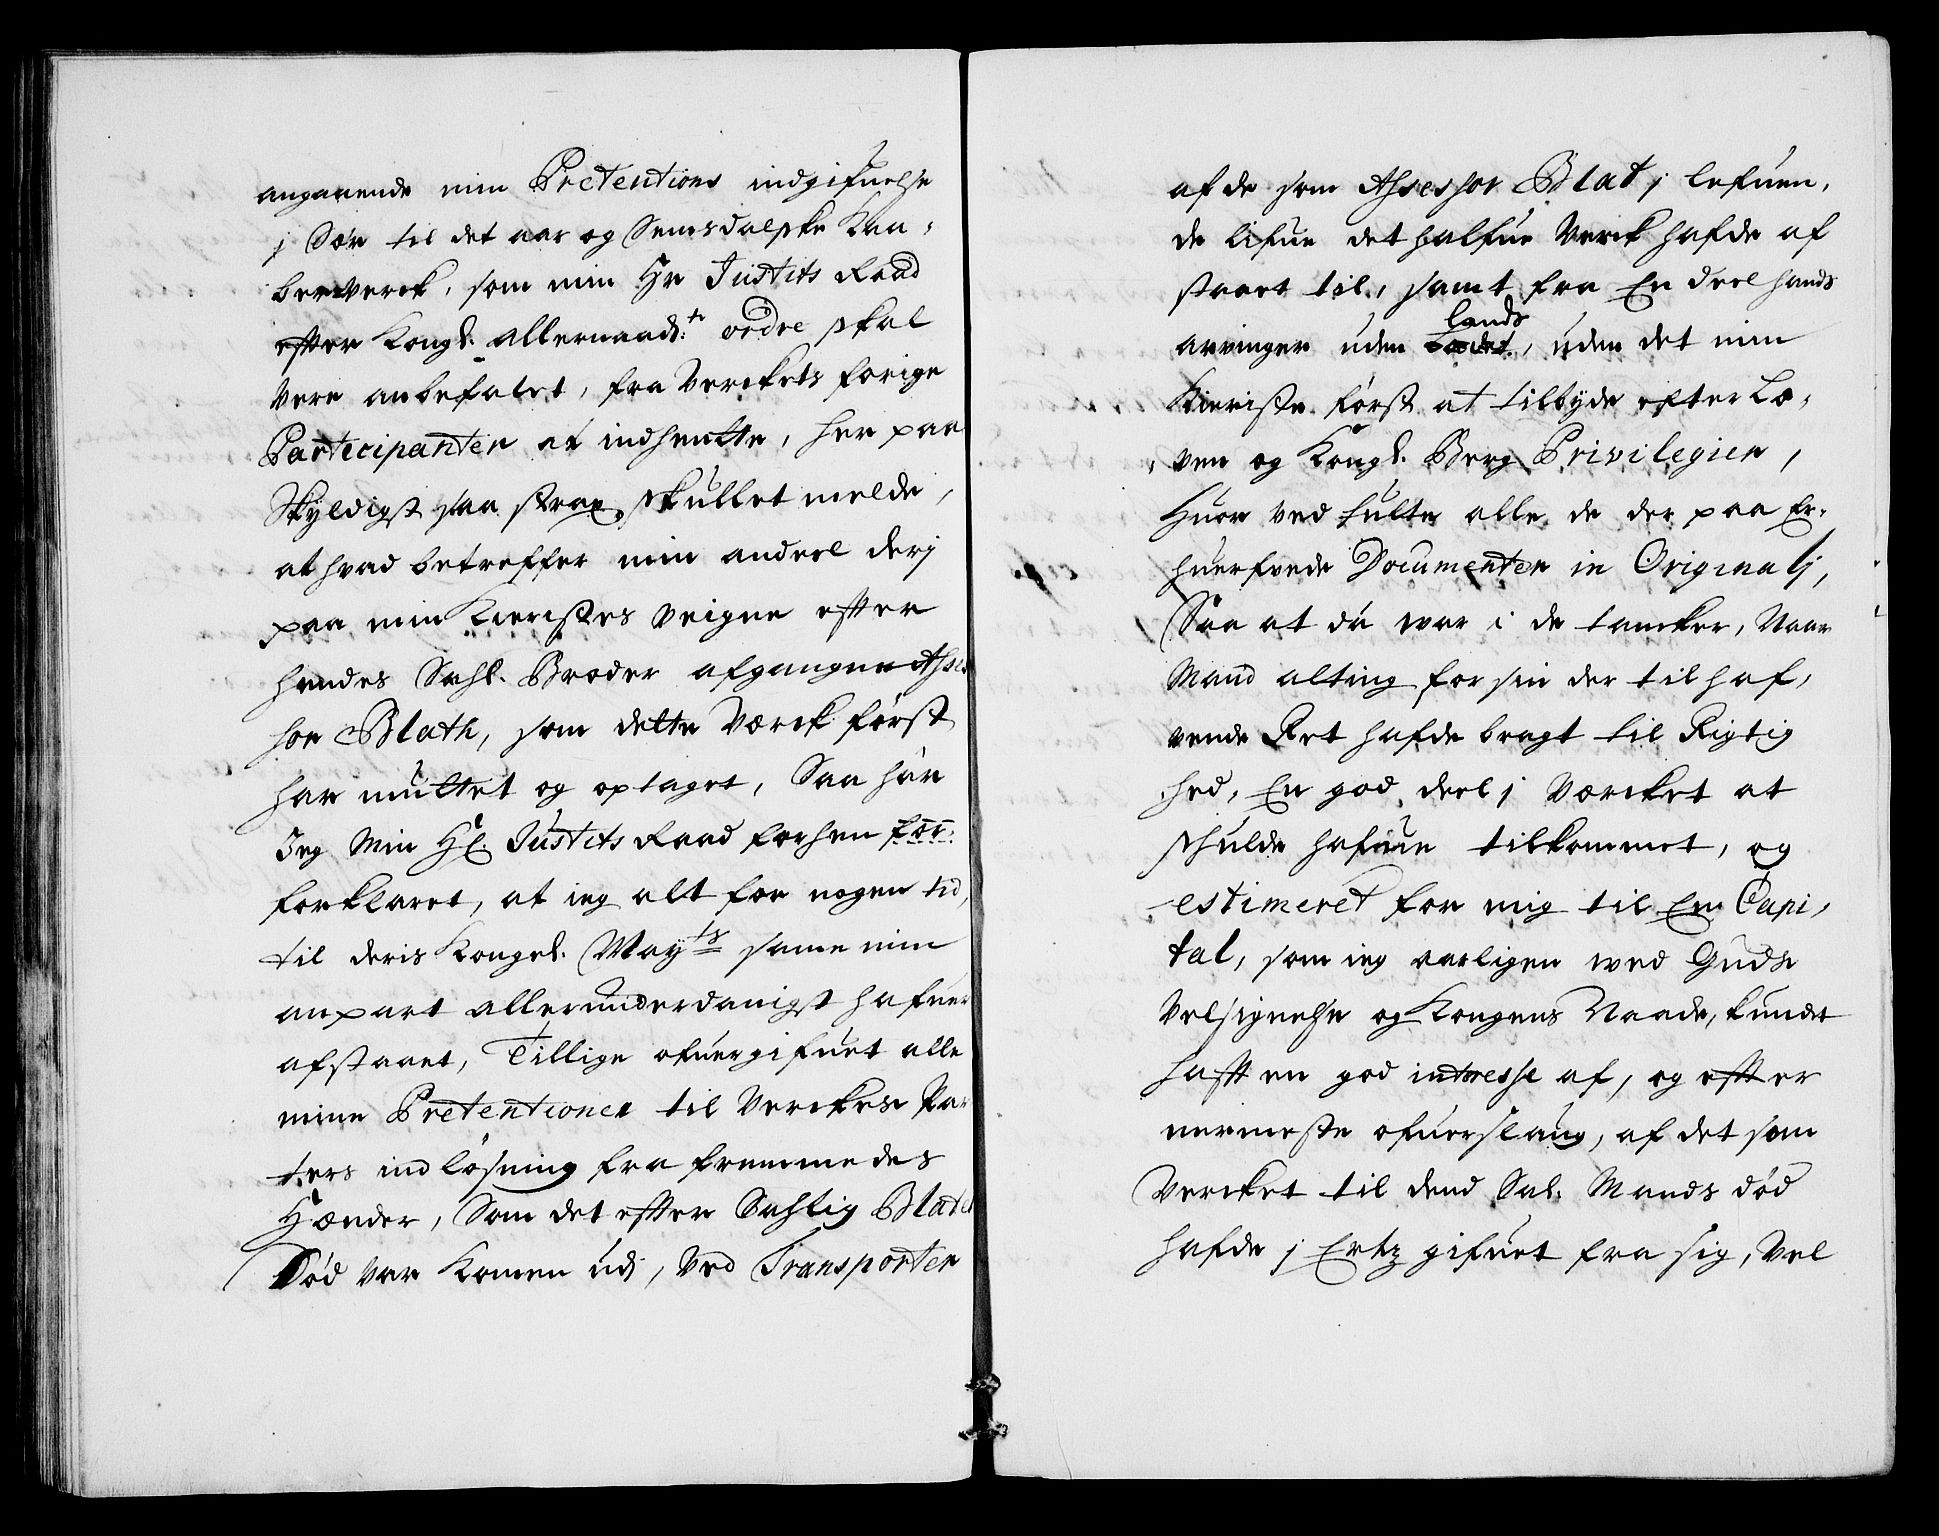 angaaende min Pretentions indgifuelse
j Sør til det aar og Semsdalske Kaa-
berverck, som min Hr Justits Raad
efter Kongl. allernaads:te ordre skal
vere anbefalet, fra Verckets forige
Participanter at indhente, her paa
Skyldigst saa strax skullet melde,
at hvad betreffer min andeel derj
paa min Kieristes veigne efter
hendes Sahl. Broder afgangne Asses
sor Blath, som dette Værck først
har muttet og optaget, Saa har
Jeg Min Hl. Justits Raad forhen for:
forklaret, at ieg alt for nogen tid,
til deris Kongel. Mayts samme min
anpart allerunderdanigst hafuer
afstaaet, Tillige ofuergifuet alle
mine Pretentioner til Verckes Par
ters indløsning fra fremmedes
Hænder, Som det efter Sahlig Blates
Død var Komen ud, ved Transporter
af de som Assessor Blat j lefuen,
de lifue det halfue Verck hafde af
staaet til, samt fra En deel hands
arvinger uden Lands, uden det min
Kieriste først at tilbyde efter Lo,
ven og Kongl. Berg Privilegier,
Huor ved fulte alle de der paa Er-
huerfvede Documenter in Originalj,
Saa at da war i de tancker, Naar
Mand alting for sin der til haf,
vende Ret hafde bragt til Rigtig
hed, En god deel j Værcket at
skulde hafue tilkommet, og
estimeret for mig til En Capi,
tal, som ieg aarligen wed Guds
Velsignelse og Kongens Naade, kundet
haft en god intresse af, og efter
nermeste ofuerslaug, af det som
Vercket til dend Sal. Mands død
hafde j Ertz gifuet fra sig, Vel